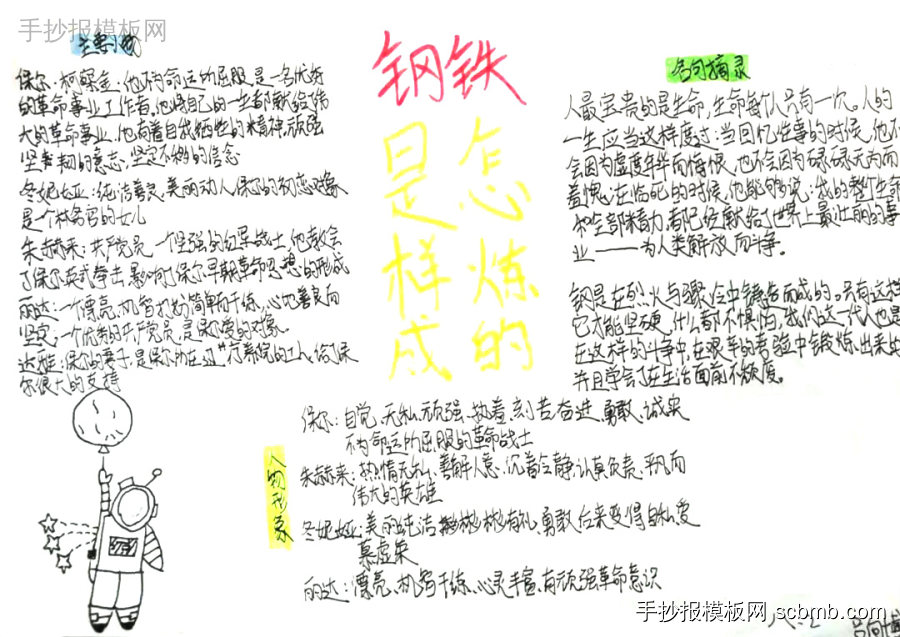 手抄报模板网
钢铁
是怎
样炼
成的
保尔·柯察金:他不向命运的屈服,是一名优秀
的革命事业工作者,他将自己的一生都献给伟
大的革命事业,他有着自我牺牲的精神,顽强
坚韧的意志,坚定不移的信念
冬妮娅:纯洁善良,美丽动人,保尔的初恋对象
是个林务官的女儿
朱赫来:共产党员,一个坚强的红军战士,他教会
了保尔英式拳击,影响了保尔早期革命思想的形成
丽达:一个漂亮,机智打扮简单而干练,心地善良而
坚定,一个优秀的共产党员,是保尔爱的对象。
达雅:保尔的妻子,是保尔所在辽疗养院的工人,给保
尔很大的支持
名句摘录
人最宝贵的是生命,生命每个人只有一次。人的
一生应当这样度过:当回忆往事的时候,他不
会因为虚度年华而悔恨,也不会因为碌碌无为而
羞愧;在临死的时候,他能够说:我的整个生命
和全部精力,都已经献给了世界上最壮丽的事
业——为人类解放而斗争。
钢是在烈火与骤冷中铸造而成的。只有这样
它才能坚硬,什么都不惧怕,我们这一代人也是
在这样的斗争中,在艰辛的考验中锻炼出来的
并且学会了在生活面前不颓废。
人物形象
保尔:自觉、无私、顽强、执着、刻苦奋进、勇敢、诚实
不向命运的屈服的革命战士
朱赫来:热情无私、善解人意、沉着冷静、认真负责、平凡而
伟大的英雄
冬妮娅:美丽纯洁、彬彬有礼、勇敢后来变得自私爱
慕虚荣
丽达:漂亮、机智干练、心灵丰富、有顽强革命意识
手抄报模板网 scbmb.com